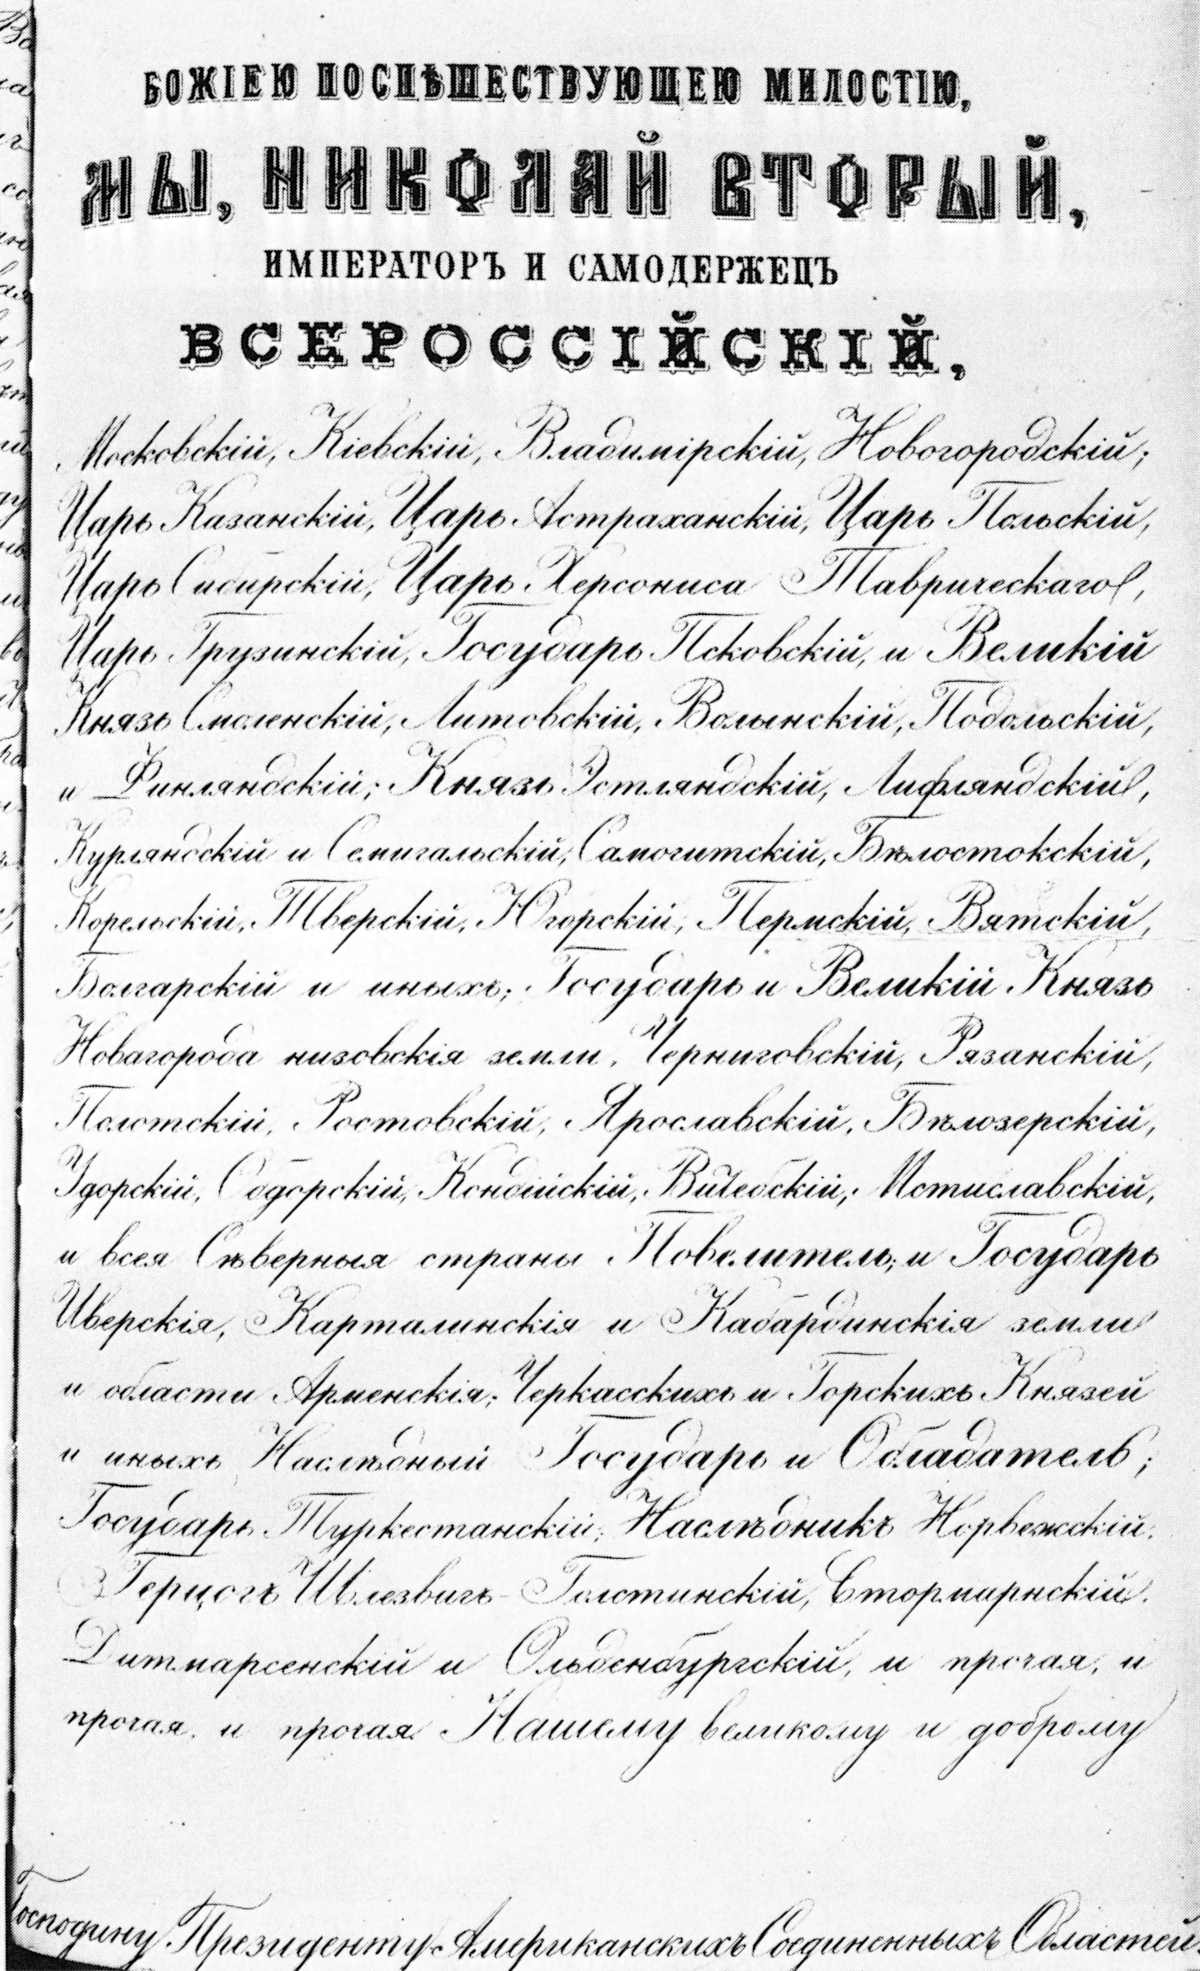 БОЖІЕЮ ПОСПѢШЕСТВУЮЩЕЮ МИЛОСТІЮ,
МЫ, НИКОЛАЙ ВТОРЫЙ,
ИМПЕРАТОРЪ И САМОДЕРЖЕЦЪ
ВСЕРОССІЙСКІЙ,
Московскій, Кіевскій, Владимірскій, Новогородскій;
Царь Казанскій, Царь Астраханскій, Царь Польскій,
Царь Сибирскій, Царь Херсониса Таврическаго,
Царь Грузинскій, Государь Псковскій, и Великій
Князь Смоленскій, Литовскій, Волынскій, Подольскій,
и Финляндскій; Князь Эстляндскій, Лифляндскій,
Курляндскій и Семигальскій, Самогитскій, Бѣлостокскій,
Корельскій, Тверскій, Югорскій, Пермскій, Вятскій,
Болгарскій и иныхъ; Государь и Великій Князь
Новагорода низовскія земли, Черниговскій, Рязанскій,
Полотскій, Ростовскій, Ярославскій, Бѣлозерскій,
Удорскій, Обдорскій, Кондійскій, Витебскій, Мстиславскій,
и всея Сѣверныя страны Повелитель; и Государь
Иверскія, Карталинскія и Кабардинскія земли
и области Арменскія; Черкасскихъ и Горскихъ Князей
и иныхъ Наслѣдный Государь и Обладатель;
Государь Туркестанскій; Наслѣдникъ Норвежскій,
Герцогъ Шлезвигъ-Голстинскій, Стормарнскій,
Дитмарсенскій и Ольденбургскій, и прочая, и
прочая, и прочая. Нашему великому и доброму
Господину Президенту Американскихъ Соединенныхъ Областей.